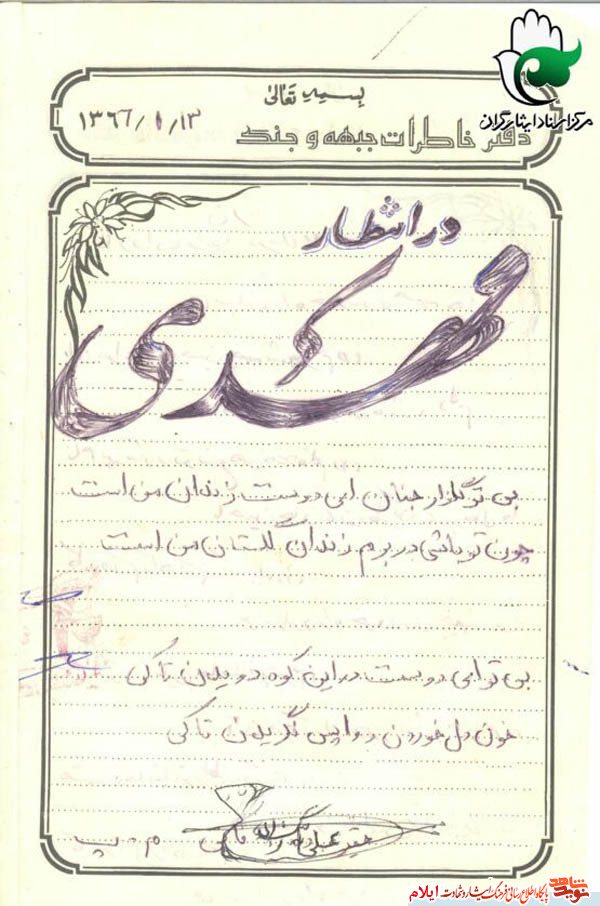 مرکز اسناد ایثارگران
بسمه تعالی
۱۳۶۶/۱/۱۳
دفتر خاطرات جبهه و جنگ
در انتظار
مهدی
بی تو گلزار جنان ای دوست زندان من است
چون تو باشی در برم زندان گلستان من است
بی تو ای دوست در این کوه دویدن تا کی
خون دل خوردن و واپس نگریدن تا کی
حقیر عملی
م.پ
نوید شاهد
پایگاه اطلاع رسانی فرهنگ ایثار و شهادت ایلام